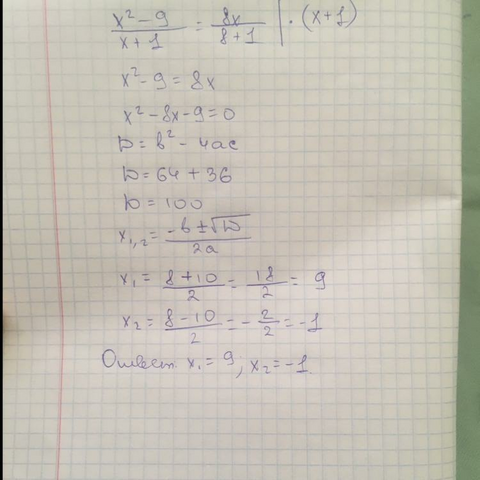 x² - 9 / x + 1 = 8x / 8 + 1 | · (x + 1)
x² - 9 = 8x
x² - 8x - 9 = 0
D = b² - 4ac
D = 64 + 36
D = 100
x₁,₂ = -b ± √D / 2a
x₁ = 8 + 10 / 2 = 18 / 2 = 9
x₂ = 8 - 10 / 2 = - 2 / 2 = -1
Ответ x₁ = 9, x₂ = -1